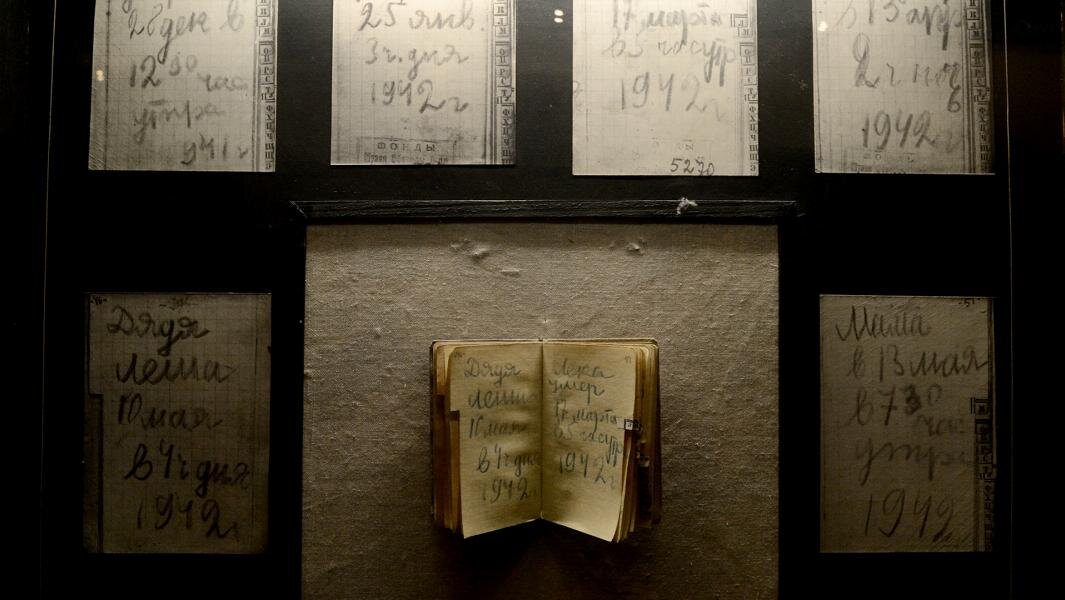 28 дек в
12 30 час
утра
941 г
25 янв.
3 ч. дня
1942 г
ФОНДЫ
17 марта
в 5 час утр
1942 г
5270
в 13 апр
2 ч ноч
1942 г
Дядя
Леша
10 мая
в 4 ч дня
1942 г
Дядя
Леша
10 мая
в 4 ч дня
1942 г
Лека
умер
17 марта
в 5 час утр
1942 г
Мама
в 13 мая
в 7 30
час
утра
1942